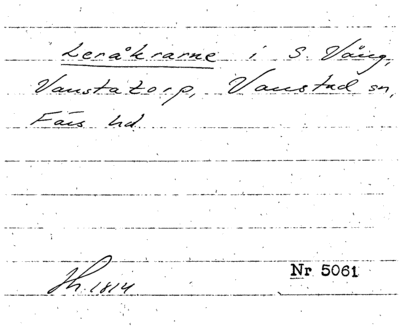 Leråkrarne i S. Vång,
Vanstatorp, Vanstad sn,
Färs hd
Sh. 1814
Nr 5061